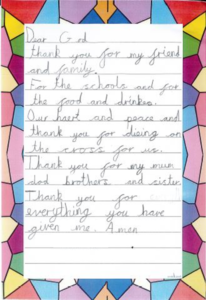 Dear God
thank you for my friend
and family.
For the schools and for
the food and drinkes.
Our hart and peace and
thank you for dieing on
the cross for us.
Thank you for my mum
dad brothers and sister
Thank you for
everything you have
given me. Amen